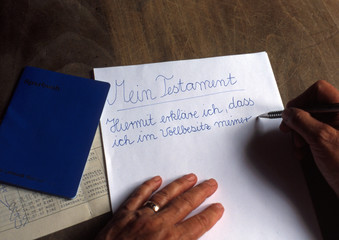 Mein Testament
Hiermit erkläre ich, dass
ich im Vollbesitz meiner